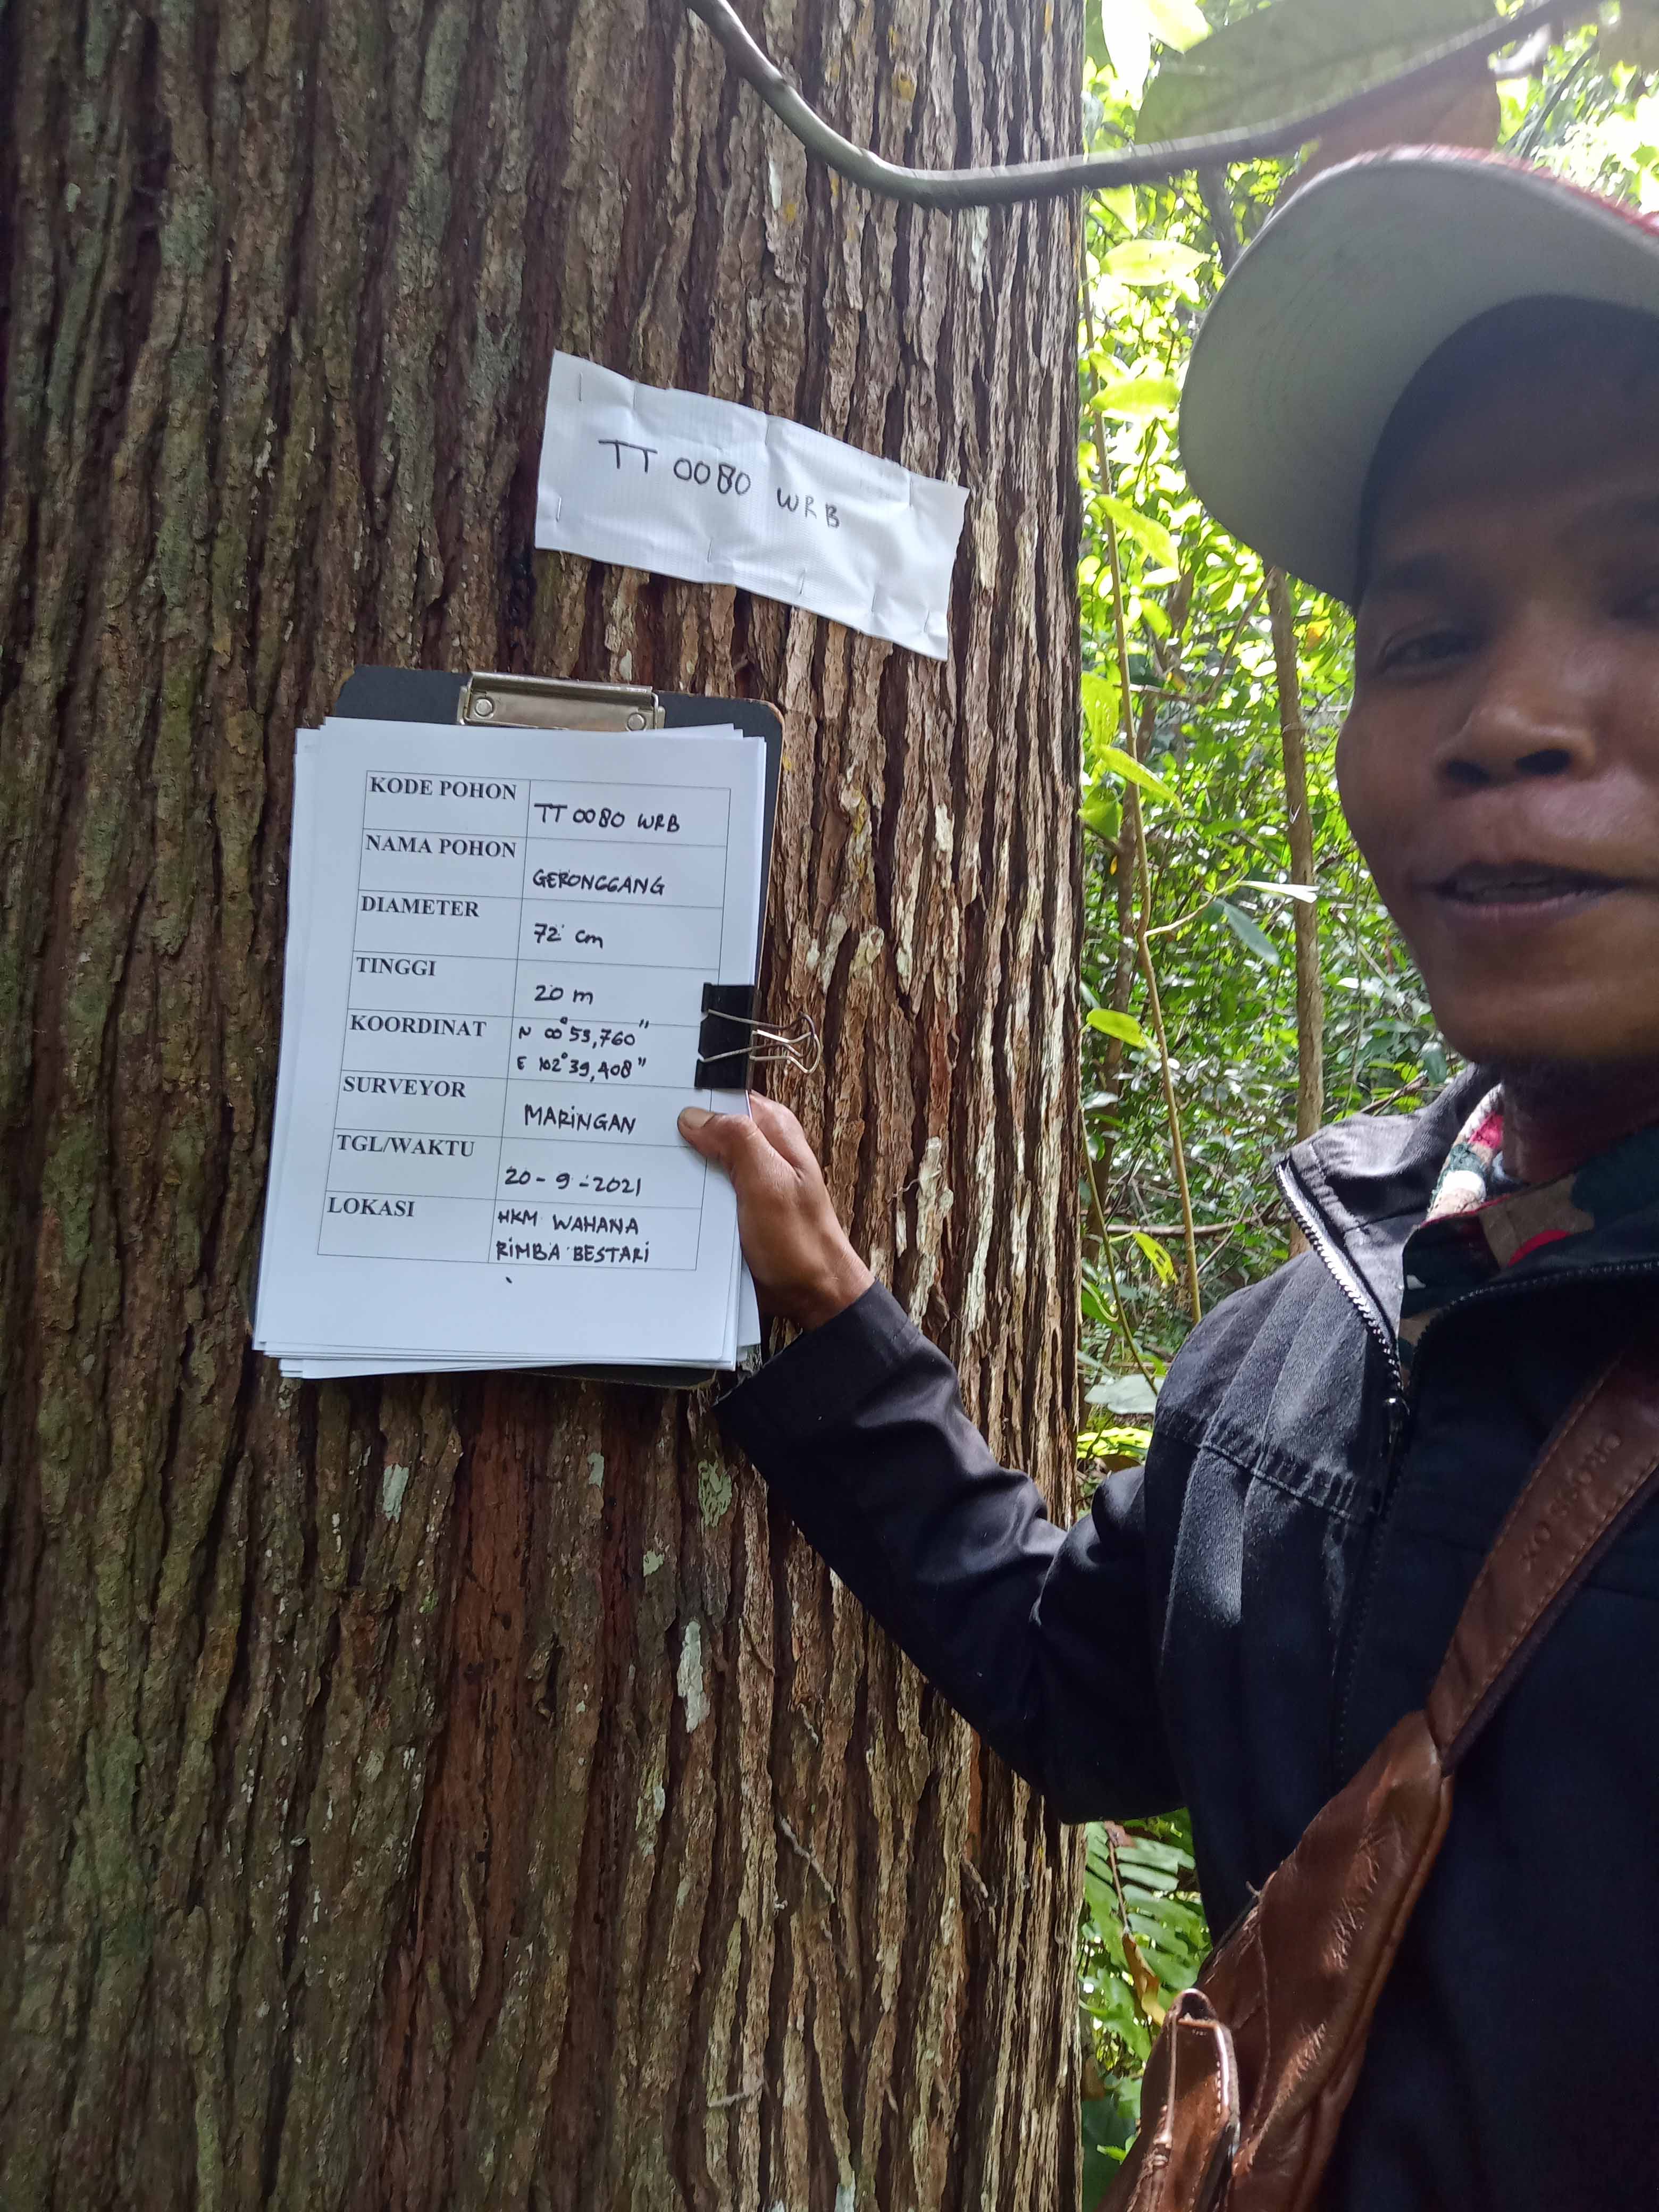 TT 0080 WRB
KODE POHON TT 0080 WRB
NAMA POHON GERONGGANG
DIAMETER 72 cm
TINGGI 20 m
KOORDINAT N 00° 53,760"
E 102° 39,408"
SURVEYOR MARINGAN
TGL/WAKTU 20-9-2021
LOKASI HKM WAHANA
RIMBA BESTARI